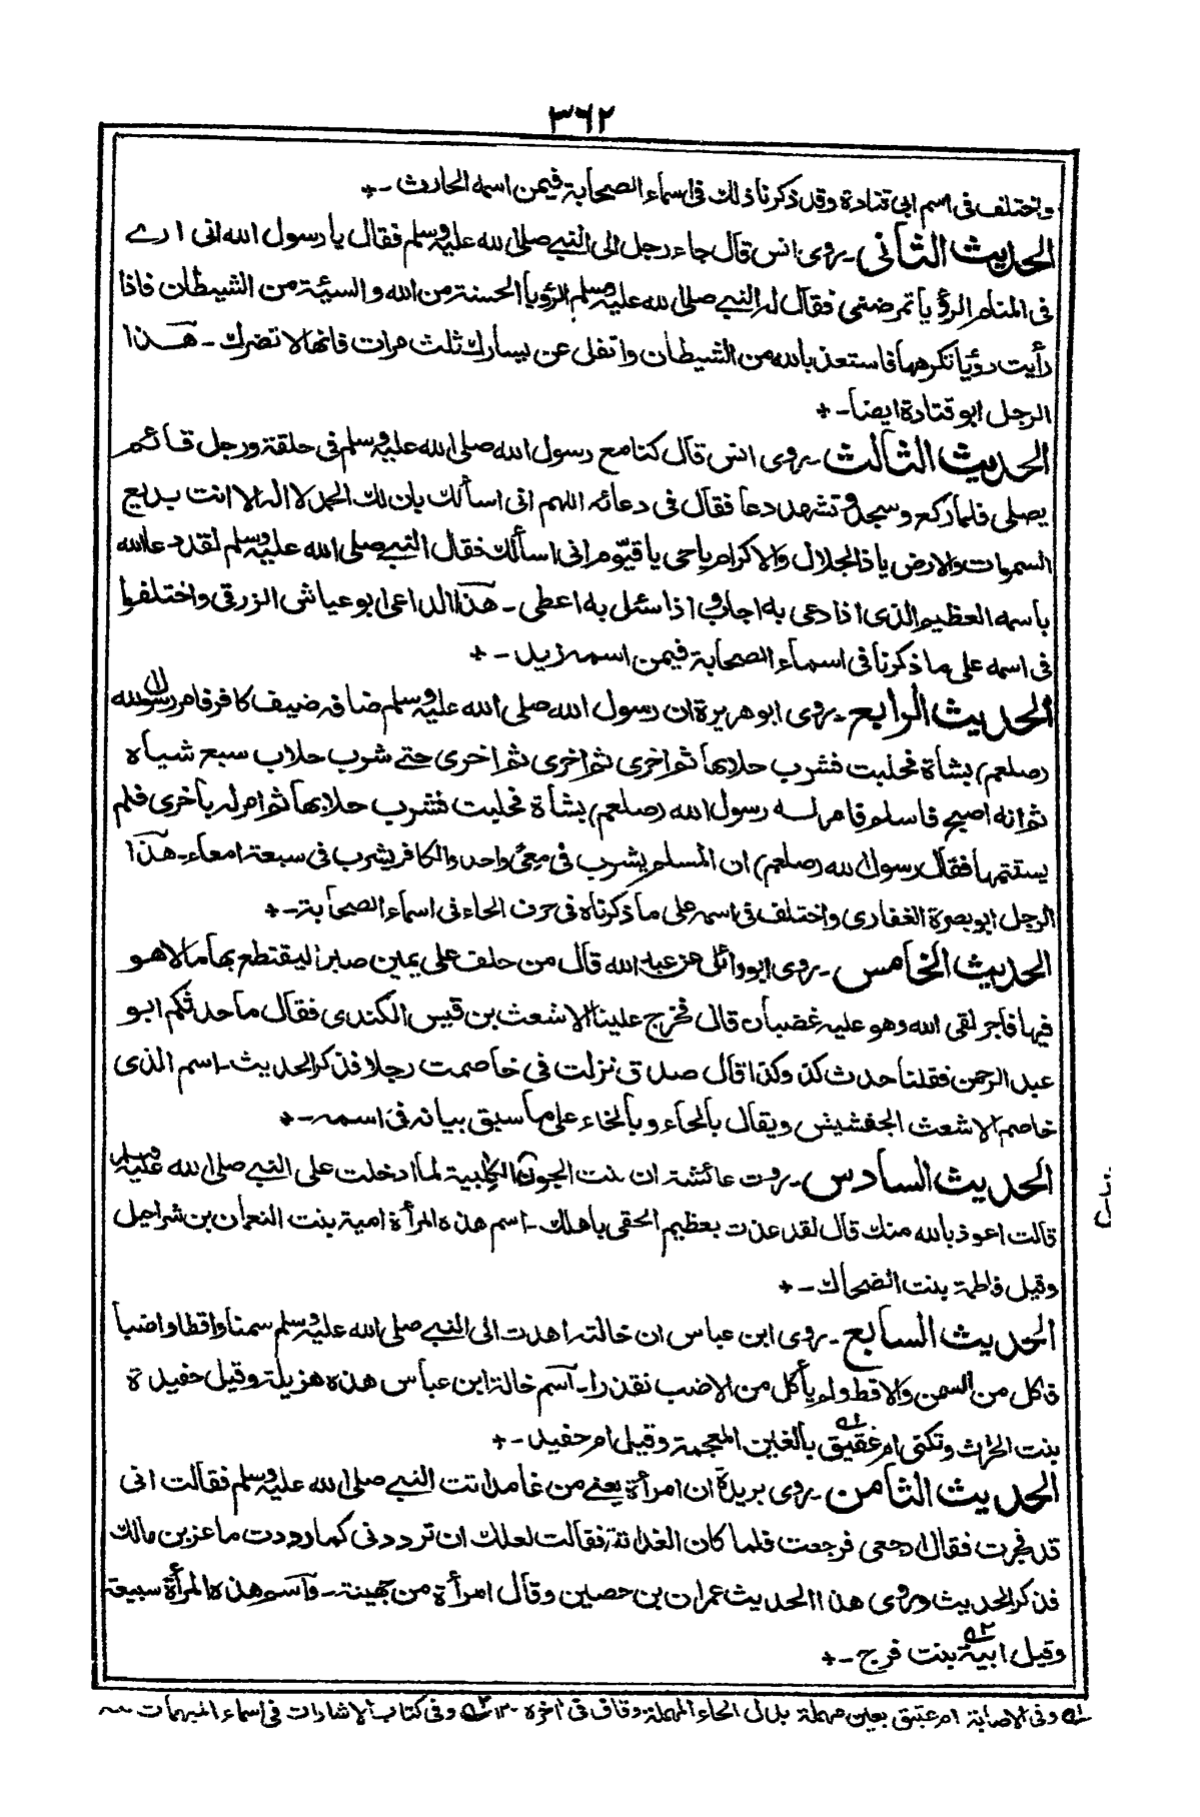 ٣٦٢
واختلف في اسم ابي قتادة وقد ذكرنا ذلك في اسماء الصحابة فيمن اسمه الحارث ـ+
الحديث الثاني ـ روى انس قال جاء رجل الى النبي صلى الله عليه وسلم فقال يا رسول الله انى ارے
فى المنام الرؤيا تمرضنى فقال له النبي صلى الله عليه وسلم الرؤيا الحسنة من الله والسيئة من الشيطان فاذا
رأيت رؤيا تكرهها فاستعذ بالله من الشيطان واتفل عن يسارك ثلث مرات فانها لا تضرك ـ هذا
الرجل ابو قتادة ايضا ـ+
الحديث الثالث ـ روى انس قال كنا مع رسول الله صلى الله عليه وسلم فى حلقة ورجل قائم
يصلى فلما ركع وسجد وتشهد دعا فقال فى دعائه اللهم انى اسألك بان لك الحمد لا اله الا انت بديع
السموات والارض يا ذا الجلال والاكرام يا حى يا قيوم انى اسألك فقال النبي صلى الله عليه وسلم لقد دعا الله
باسمه العظيم الذى اذا دعى به اجاب واذا سئل به اعطى ـ هذا الداعى ابو عياش الزرقى واختلفوا
فى اسمه على ما ذكرنا فى اسماء الصحابة فيمن اسمه زيد ـ+
الحديث الرابع ـ روى ابو هريرة ان رسول الله صلى الله عليه وسلم ضافه ضيف كافر فامر رسول الله
(صلعم) بشاة فحلبت فشرب حلابها ثم اخرى ثم اخرى ثم اخرى حتى شرب حلاب سبع شياه
ثم انه اصبح فاسلم فامر له رسول الله (صلعم) بشاة فحلبت فشرب حلابها ثم امر له باخرى فلم
يستتمها فقال رسول الله (صلعم) ان المسلم يشرب فى معى واحد والكافر يشرب فى سبعة امعاء ـ هذا
الرجل ابو بصرة الغفارى واختلف فى اسمه على ما ذكرناه فى حرف الحاء فى اسماء الصحابة ـ+
الحديث الخامس ـ روى ابو وائل عن عبد الله قال من حلف على يمين صبرا ليقتطع بها مالا هو
فيها فاجر لقى الله وهو عليه غضبان قال فخرج علينا الاشعث بن قيس الكندى فقال ما حدثكم ابو
عبد الرحمن فقلنا حدث كذا وكذا قال صدق نزلت فى خاصمت رجلا فذكر الحديث ـ اسم الذى
خاصم الاشعث الجفشيش ويقال بالحاء وبالخاء على ما سبق بيانه فى اسمه ـ+
الحديث السادس ـ روت عائشة ان بنت الجون الكلبية لما ادخلت على النبي صلى الله عليه وسلم
قالت اعوذ بالله منك قال لقد عذت بعظيم الحقى باهلك ـ اسم هذه المرأة امية بنت النعمان بن شراحيل
وقيل فاطمة بنت الضحاك ـ+
الحديث السابع ـ روى ابن عباس ان خالته اهدت الى النبي صلى الله عليه وسلم سمنا واقطا واضبا
فاكل من السمن والاقط ولم يأكل من الاضب تقذرا ـ اسم خالة ابن عباس هذه هزيلة وقيل حفيدة
بنت الحرث وتكنى ام غقيق ⁠ہ١ بالغين المعجمة وقيل ام حفيد ـ+
الحديث الثامن ـ روى بريدة ان امرأة يعنى من غامد اتت النبي صلى الله عليه وسلم فقالت انى
قد فجرت فقال ارجعى فرجعت فلما كان الغد اتته فقالت لعلك ان ترددنى كما رددت ماعز بن مالك
فذكر الحديث وروى هذا الحديث عمران بن حصين وقال امرأة من جهينة ـ واسم هذه المرأة سبيعة
وقيل ابية ہ٢ بنت فرج ـ+
ہ١ وفى الاصابة ام عتيق بعين مهملة بدل الحاء المهملة وقاف فى آخره ١٢ ہ٢ وفى كتاب الاشارات فى اسماء المبهمات